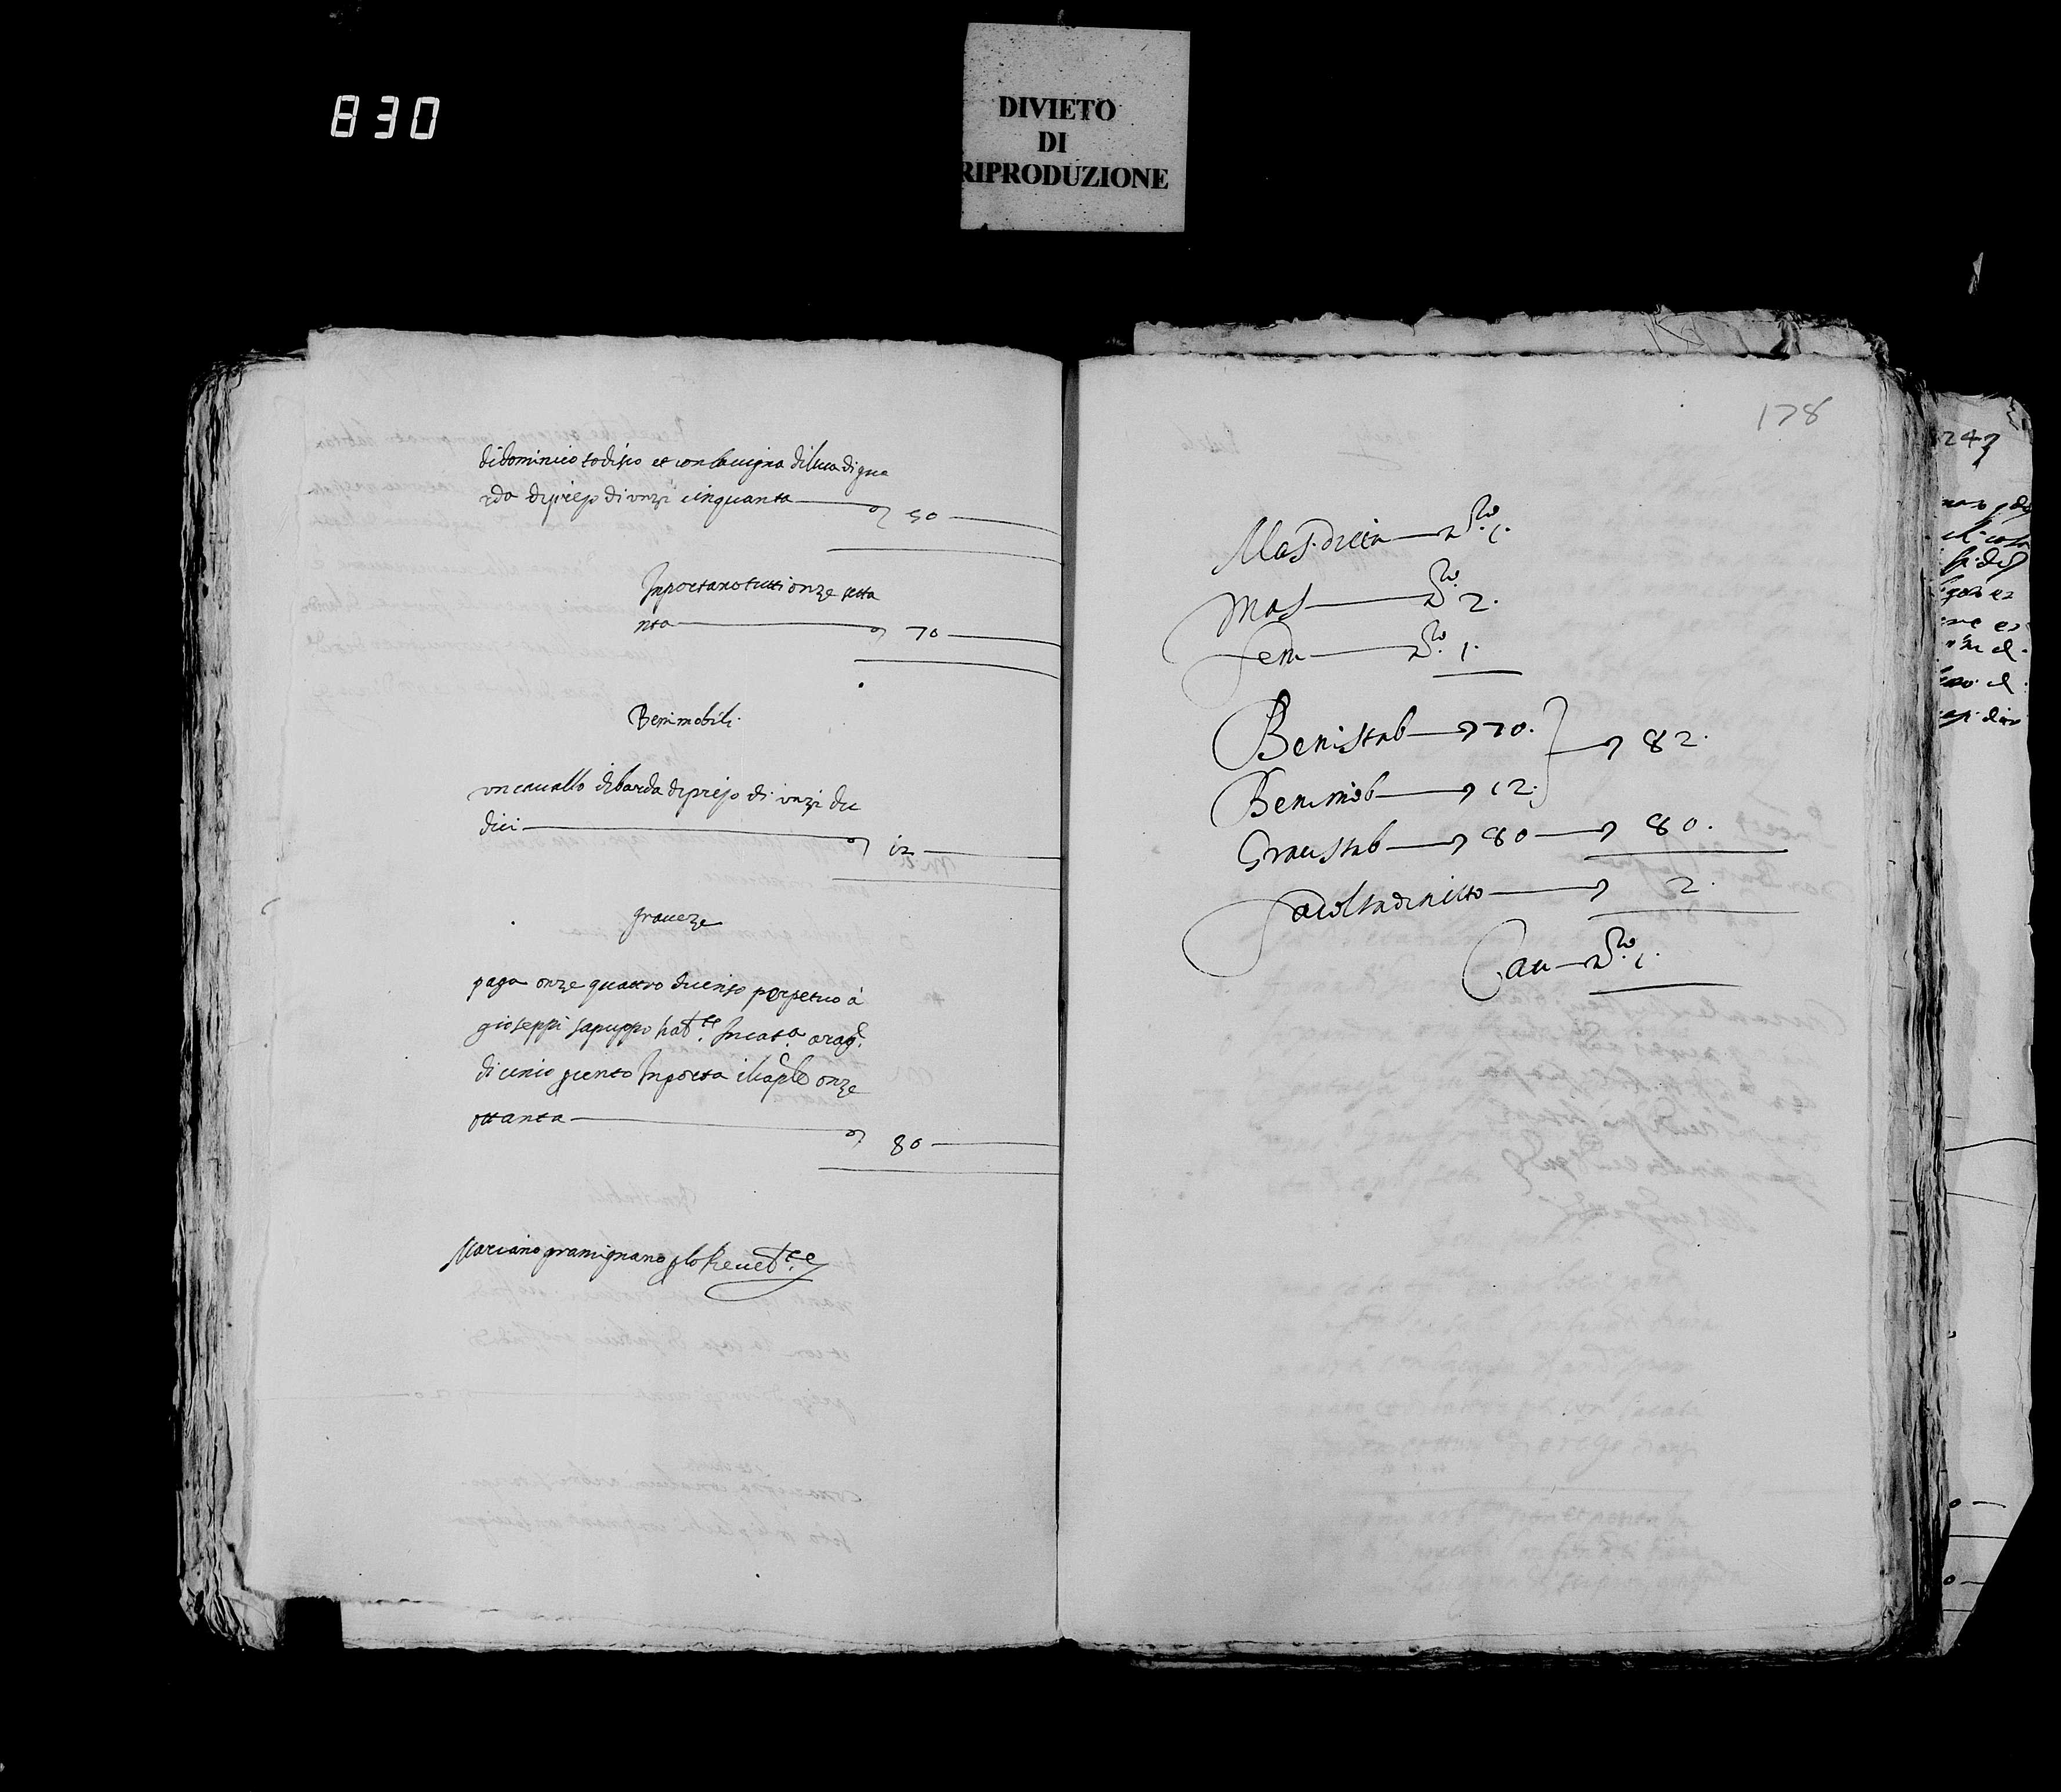 830
DIVIETO
DI
RIPRODUZIONE
di dominico todisco et con la vigna di luca di gua
rda di prezo di unzi cinquanta 50
Inportano tutti onze setta
nta 70
Beni mobili
un cavallo di barda di prezo di unzi du
dici 12
graveze
paga onze quattro di censo perpetuo à
gioseppi sapuppo hat.te In cat.a
di cinco per cento Inporta il cap.le onze
ottanta 80
Mariano gramignano p lo Revet.te
178
Mas. di età n.ro 1.
Mas n.ro 2.
Fem n.ro 1.
Beni Stab 70. 82.
Beni mob 12.
Grau Stab 80 80.
facolta di netto 2.
Cau n.ro 1.
247